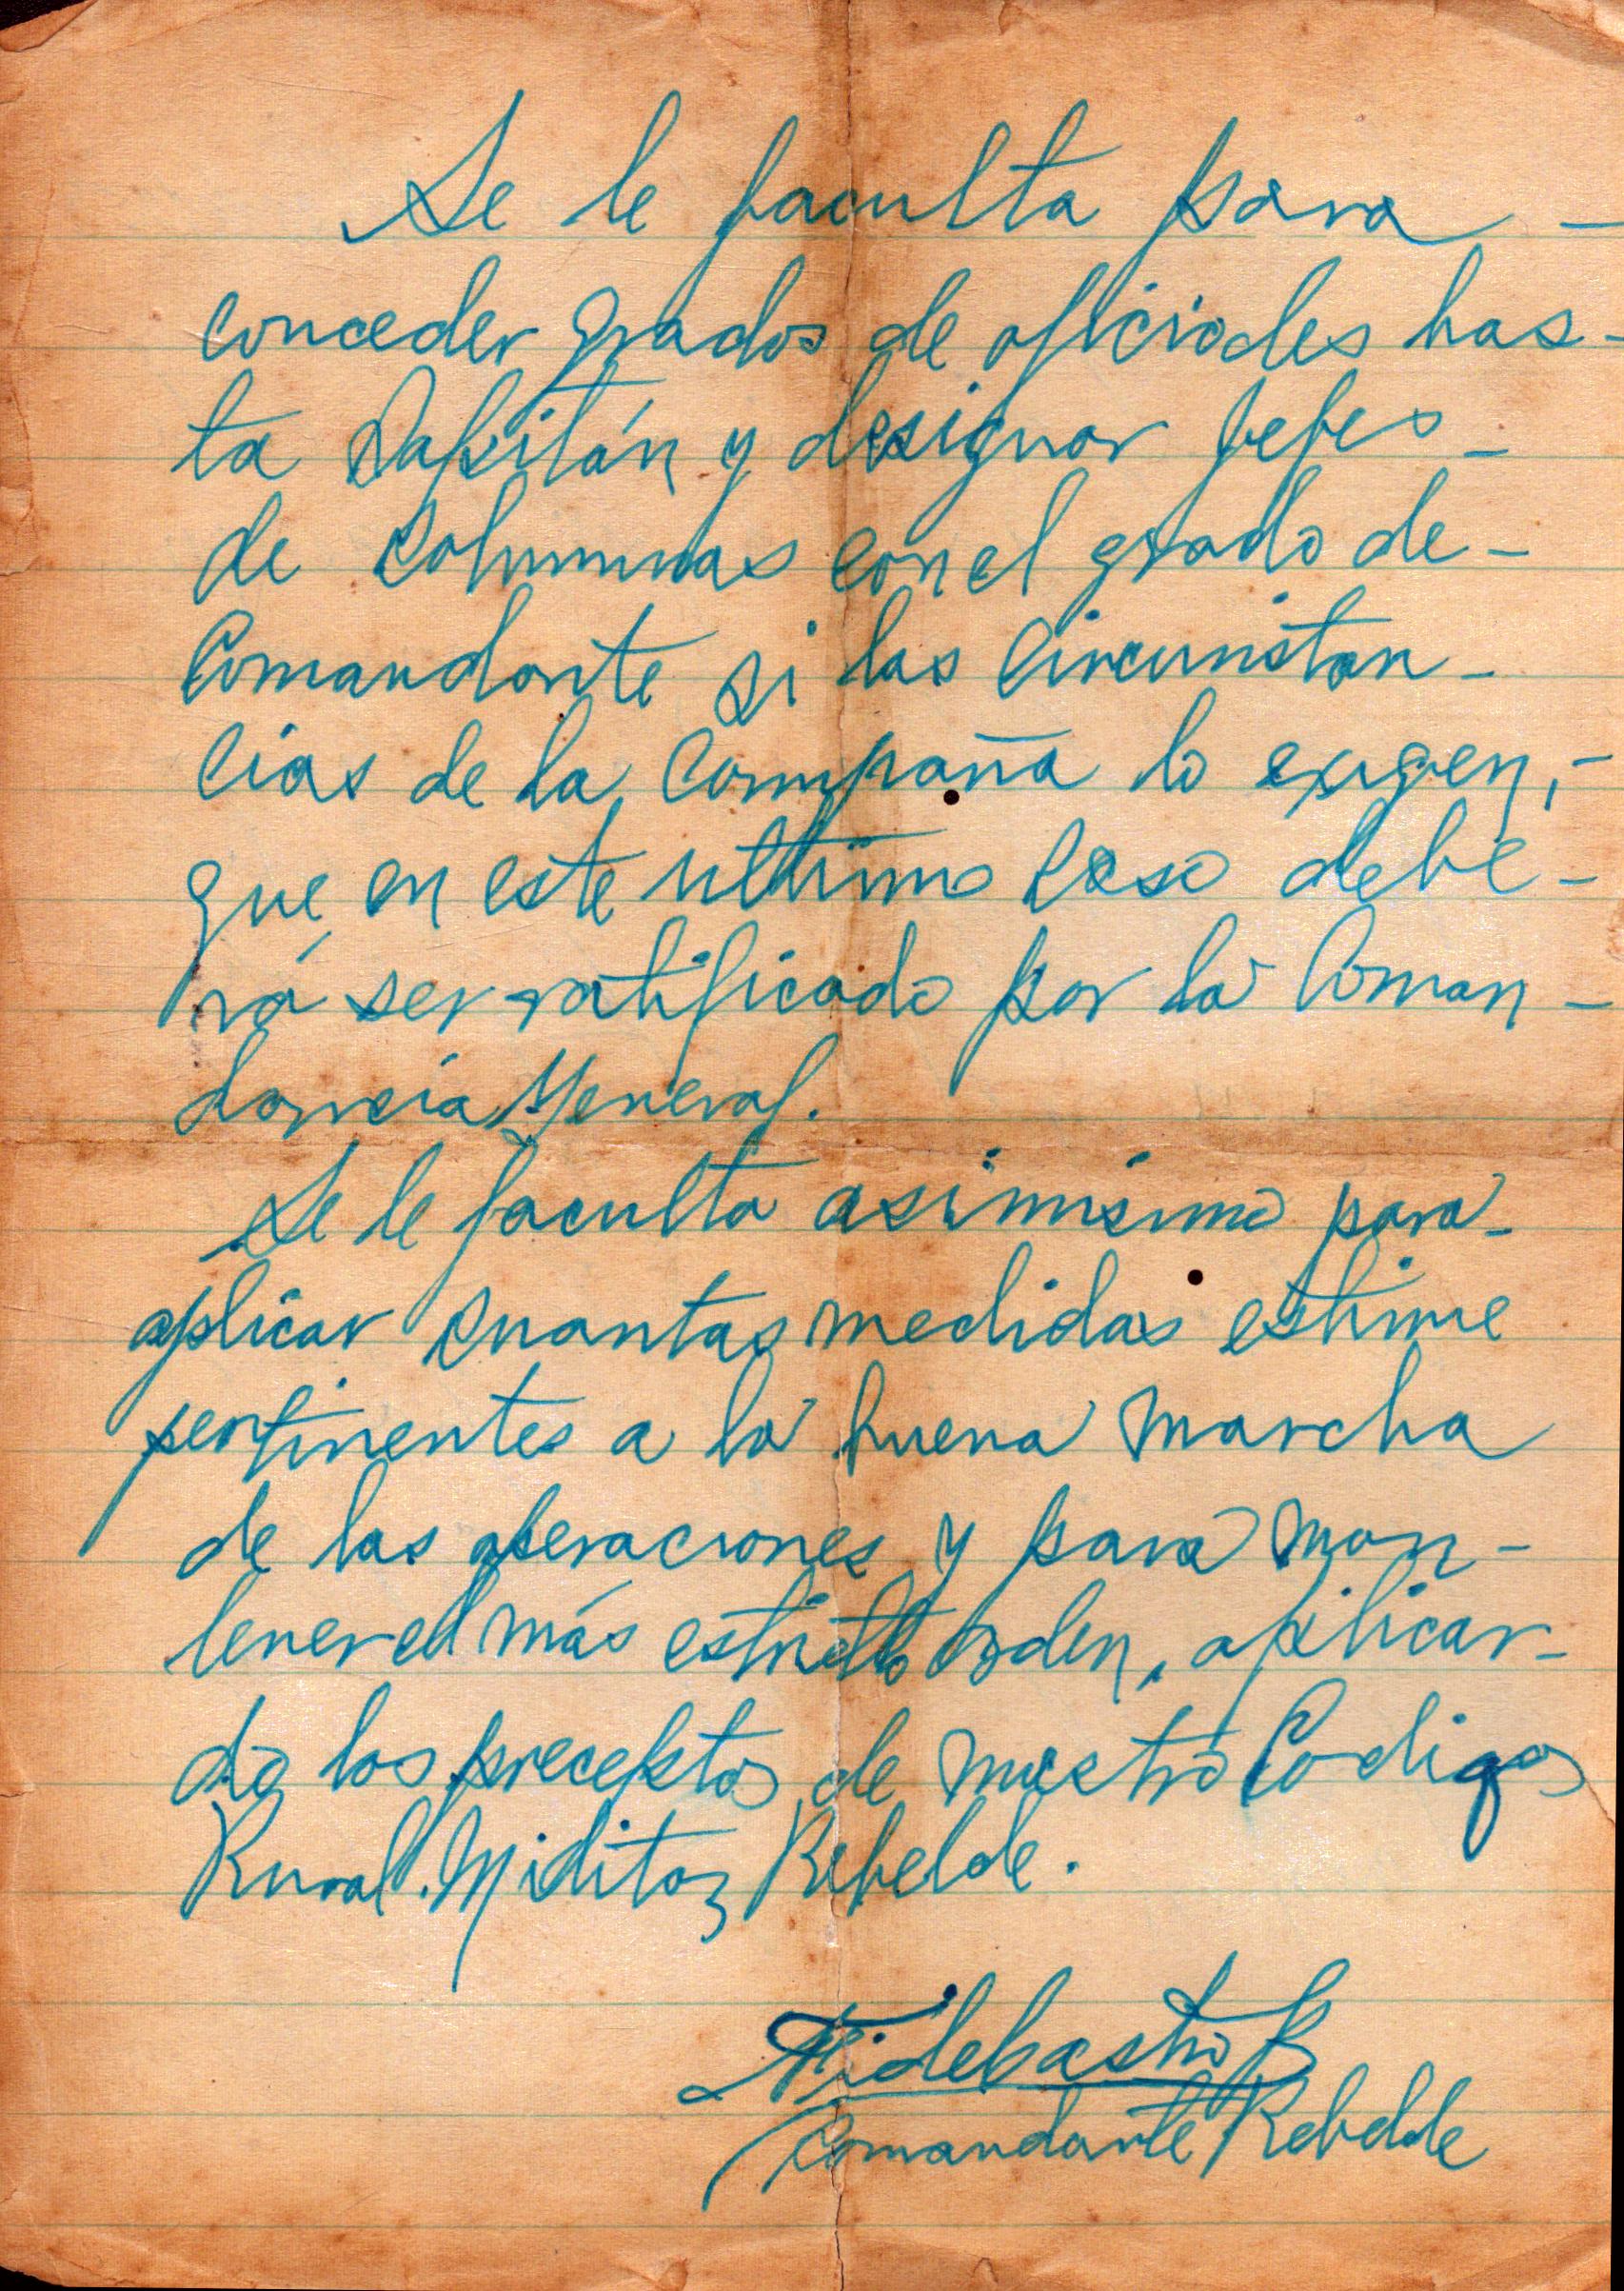 Se le faculta para -
conceder grados de oficiales has-
ta Capitán y designar jefes -
de columnas con el grado de -
Comandante si las circunstan-
cias de la Campaña lo exigen, -
que en este ultimo caso debe-
rá ser ratificado por la Coman-
dancia General.
Se le faculta asimismo para -
aplicar cuantas medidas estime
pertinentes a la buena marcha
de las operaciones y para man-
tener el más estricto orden, aplican-
do los preceptos de nuestro Codigos
Rural. Militar Rebelde.
Fidel Castro R
Comandante Rebelde